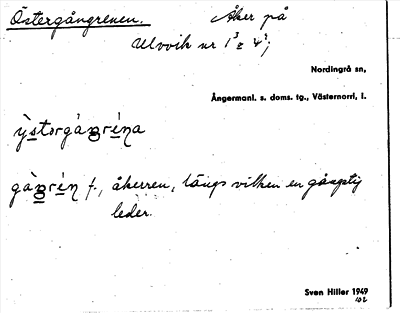 Östergångrenen. Åker på
Ulvvik nr 1³ & 4²;
Nordingrå sn,
Ångermanl. s. doms. tg., Västernorrl, l.
ỳstorgàŋréna
gàŋrén f., åkerren, längs vilken en gångstig
leder.
Sven Hiller 1949